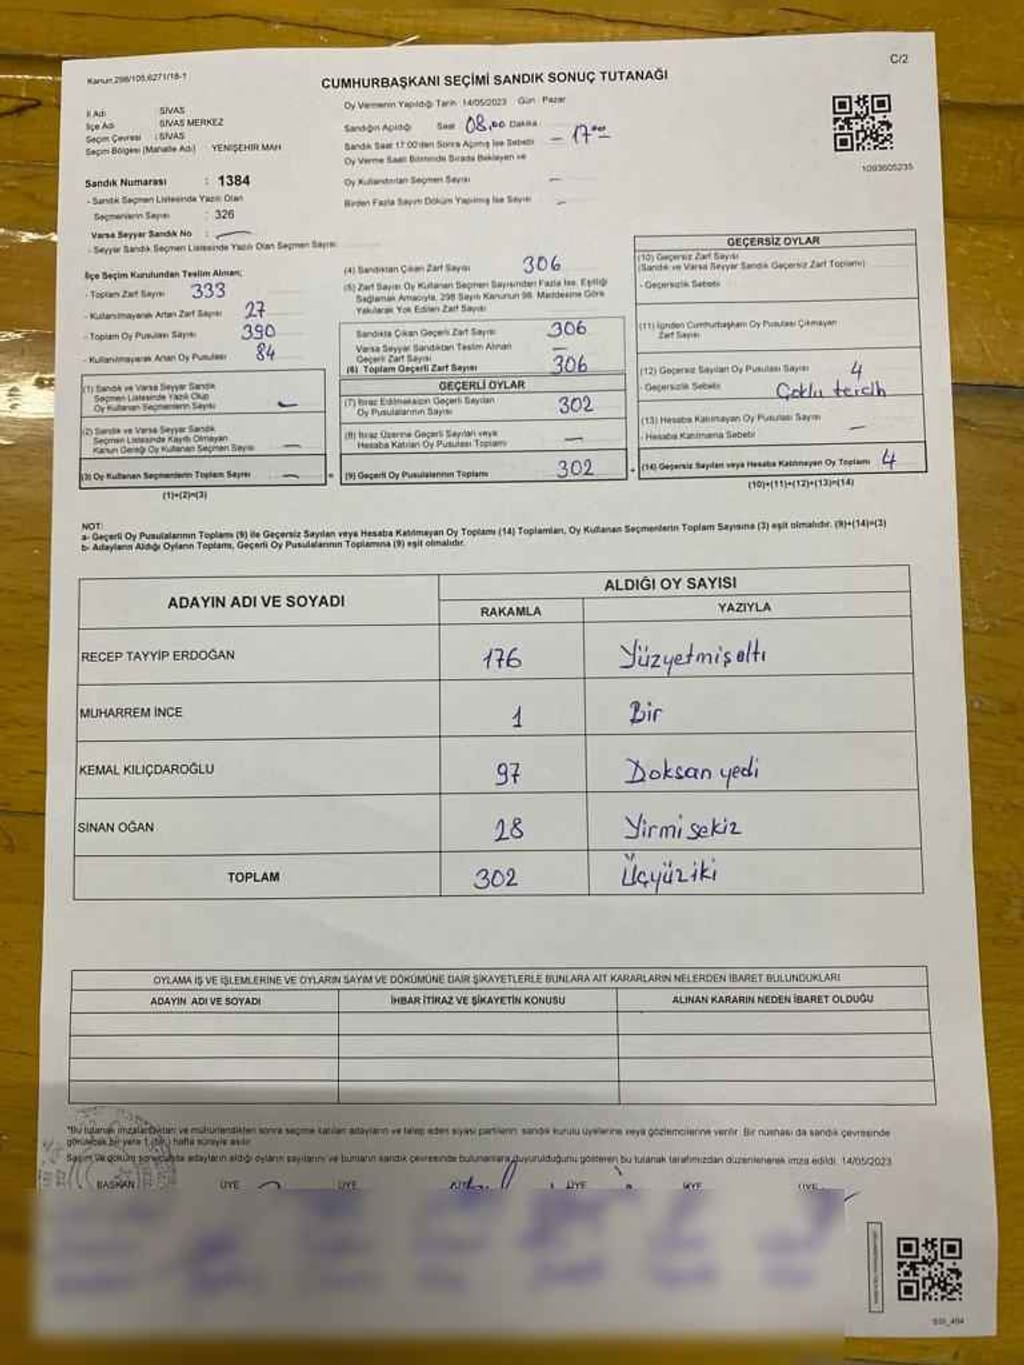 Kanun 298/105,6271/18-1
C/2
CUMHURBAŞKANI SEÇİMİ SANDIK SONUÇ TUTANAĞI
İl Adı SİVAS
İlçe Adı SİVAS MERKEZ
Seçim Çevresi : SİVAS
Seçim Bölgesi (Mahalle Adı) YENİŞEHİR MAH
Sandık Numarası : 1384
- Sandık Seçmen Listesinde Yazılı Olan
Seçmenlerin Sayısı : 326
Varsa Seyyar Sandık No :
- Seyyar Sandık Seçmen Listesinde Yazılı Olan Seçmen Sayısı
Oy Vermenin Yapıldığı Tarih 14/05/2023 Gün : Pazar
Sandığın Açıldığı Saat 08.00 Dakika
Sandık Saat 17:00'den Sonra Açılmış İse Sebebi - 17.00
Oy Verme Saati Bitiminde Sırada Bekleyen ve
Oy Kullandırılan Seçmen Sayısı —
Birden Fazla Sayım Döküm Yapılmış İse Sayısı —
1093605235
İlçe Seçim Kurulundan Teslim Alınan;
- Toplam Zarf Sayısı 333
- Kullanılmayarak Artan Zarf Sayısı 27
- Toplam Oy Pusulası Sayısı 390
- Kullanılmayarak Artan Oy Pusulası 84
(1) Sandık ve Varsa Seyyar Sandık
Seçmen Listesinde Yazılı Olup
Oy Kullanan Seçmenlerin Sayısı —
(2) Sandık ve Varsa Seyyar Sandık
Seçmen Listesinde Kayıtlı Olmayan
Kanun Gereği Oy Kullanan Seçmen Sayısı —
(3) Oy Kullanan Seçmenlerin Toplam Sayısı —
(1)+(2)=(3)
=
(4) Sandıktan Çıkan Zarf Sayısı 306
(5) Zarf Sayısı Oy Kullanan Seçmen Sayısından Fazla İse, Eşitliği
Sağlamak Amacıyla, 298 Sayılı Kanunun 98. Maddesine Göre
Yakılarak Yok Edilen Zarf Sayısı
Sandıkta Çıkan Geçerli Zarf Sayısı 306
Varsa Seyyar Sandıktan Teslim Alınan
Geçerli Zarf Sayısı —
(6) Toplam Geçerli Zarf Sayısı 306
GEÇERLİ OYLAR
(7) İtiraz Edilmeksizin Geçerli Sayılan
Oy Pusulalarının Sayısı 302
(8) İtiraz Üzerine Geçerli Sayılan veya
Hesaba Katılan Oy Pusulası Toplamı —
(9) Geçerli Oy Pusulalarının Toplamı 302
+
GEÇERSİZ OYLAR
(10) Geçersiz Zarf Sayısı
(Sandık ve Varsa Seyyar Sandık Geçersiz Zarf Toplamı)
- Geçersizlik Sebebi
(11) İçinden Cumhurbaşkanı Oy Pusulası Çıkmayan
Zarf Sayısı
(12) Geçersiz Sayılan Oy Pusulası Sayısı 4
- Geçersizlik Sebebi Çoklu tercih
(13) Hesaba Katılmayan Oy Pusulası Sayısı —
- Hesaba Katılmama Sebebi
(14) Geçersiz Sayılan veya Hesaba Katılmayan Oy Toplamı 4
(10)+(11)+(12)+(13)=(14)
NOT:
a- Geçerli Oy Pusulalarının Toplamı (9) ile Geçersiz Sayılan veya Hesaba Katılmayan Oy Toplamı (14) Toplamları, Oy Kullanan Seçmenlerin Toplam Sayısına (3) eşit olmalıdır. (9)+(14)=(3)
b- Adayların Aldığı Oyların Toplamı, Geçerli Oy Pusulalarının Toplamına (9) eşit olmalıdır.
ADAYIN ADI VE SOYADI
ALDIĞI OY SAYISI
RAKAMLA YAZIYLA
RECEP TAYYİP ERDOĞAN 176 Yüzyetmişaltı
MUHARREM İNCE 1 Bir
KEMAL KILIÇDAROĞLU 97 Doksan yedi
SİNAN OĞAN 28 Yirmi sekiz
TOPLAM 302 Üçyüziki
OYLAMA İŞ VE İŞLEMLERİNE VE OYLARIN SAYIM VE DÖKÜMÜNE DAİR ŞİKAYETLERLE BUNLARA AİT KARARLARIN NELERDEN İBARET BULUNDUKLARI
ADAYIN ADI VE SOYADI İHBAR İTİRAZ VE ŞİKAYETİN KONUSU ALINAN KARARIN NEDEN İBARET OLDUĞU
*Bu tutanak imzalandıktan ve mühürlendikten sonra seçime katılan adayların ve talep eden siyasi partilerin sandık kurulu üyelerine veya gözlemcilerine verilir. Bir nüshası da sandık çevresinde
görülecek bir yere 1 (bir) hafta süreyle asılır.
Seçim ve döküm sonucunda adayların aldığı oyların sayılarını ve bunların sandık çevresinde bulunanlara duyurulduğunu gösteren bu tutanak tarafımızdan düzenlenerek imza edildi. 14/05/2023
BAŞKAN ÜYE ÜYE ÜYE ÜYE ÜYE